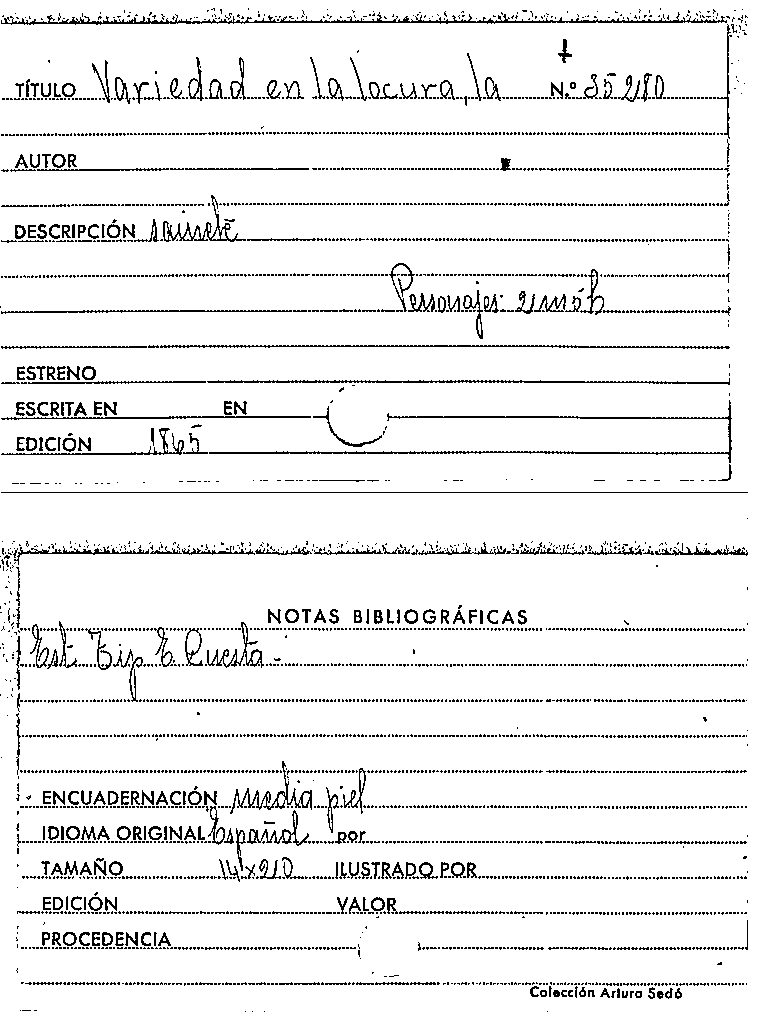 TÍTULO Variedad en la locura, la N.º 35280
AUTOR
DESCRIPCIÓN sainete
Personajes: 2 m 5 h
ESTRENO
ESCRITA EN EN
EDICIÓN 1865
NOTAS BIBLIOGRÁFICAS
Est. Tip. E. Cuesta -
ENCUADERNACIÓN media piel
IDIOMA ORIGINAL Español por
TAMAÑO 14x20 ILUSTRADO POR
EDICIÓN VALOR
PROCEDENCIA
Colección Arturo Sedó